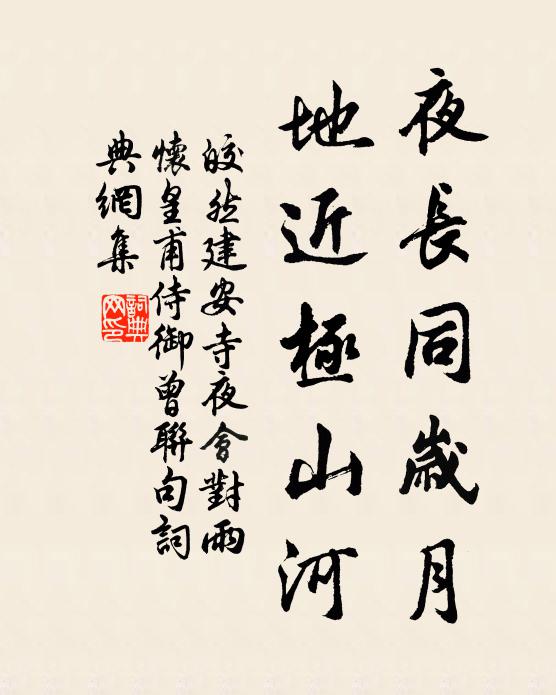 夜長同歲月
地近極山河
皎然建安寺夜會對雨
懷皇甫侍御曾聯句詞
典網集
詞典網印